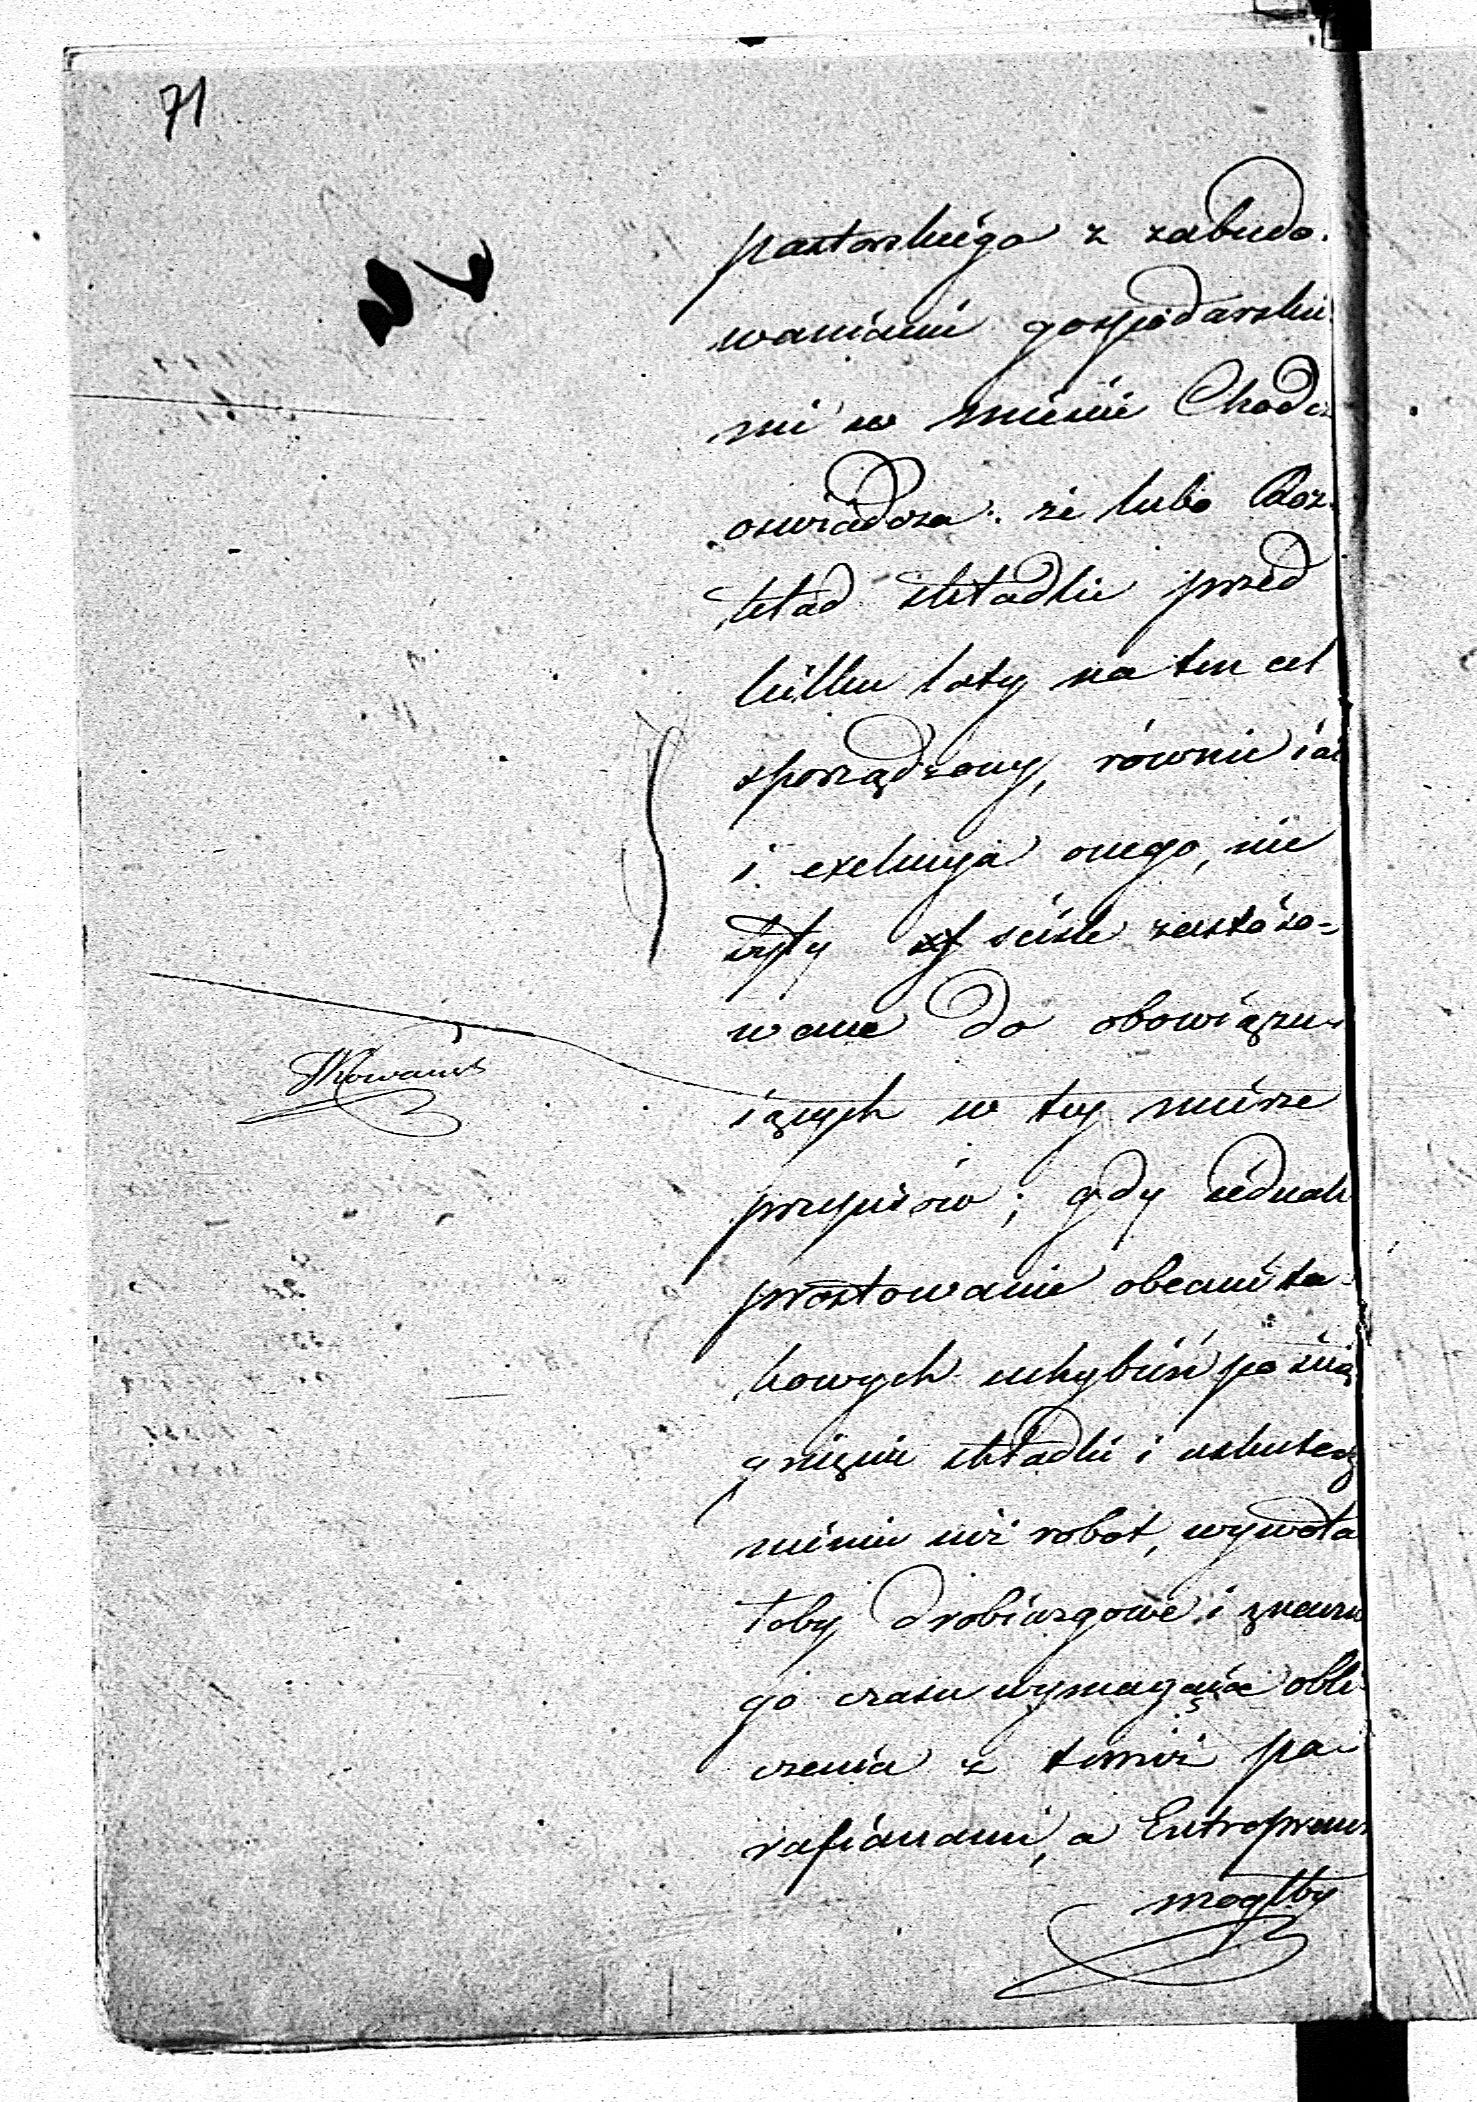 71
pastorskiego z zabudo-
waniami gospodarski
mi w mieście Chodcz
oświadcza: że lubo Roz-
kład składki przed
kilku laty na ten cel
sporządzony, równie iak
i exekucya onego, nie
były ściśle zastóso=
wane do obowiązu-
iących w tey mierze
przepisów; gdy iednak
prostowanie obecnie ta-
kowych uchybień po ścią
gnięciu składki i uskutecz
nieniu iuż robot, wywoła
łoby drobiazgowe i znaczne
go czasu wymagaiące obli
czenia z temiż pa-
rafianami, a Entrepreneur
mogłby